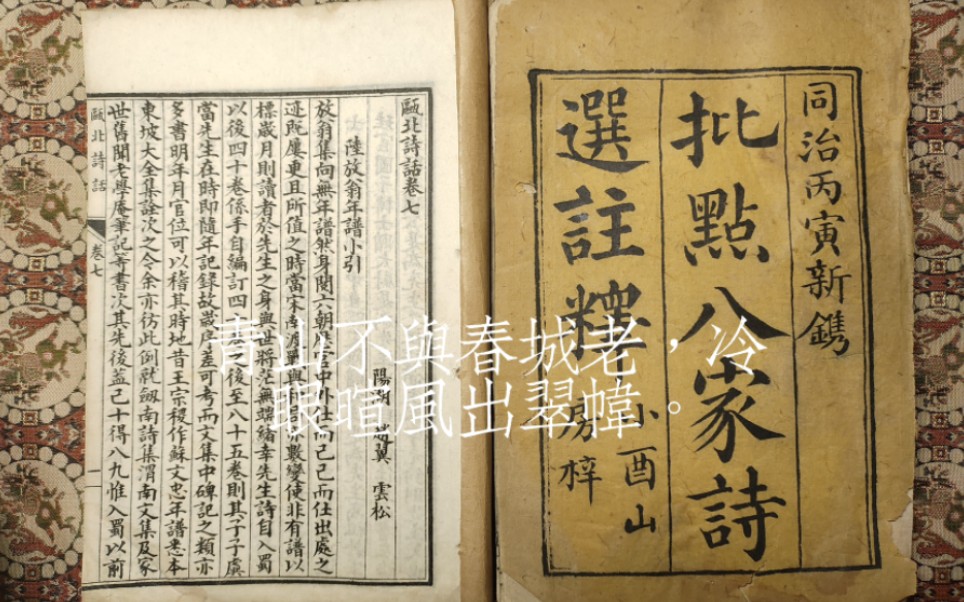 同治丙寅新鐫
批點八家詩
選註釋
小酉山
房梓
甌北詩話卷七
陽湖 趙翼 雲松
陸放翁年譜小引
放翁集向無年譜然身閱六朝歷官中外仕而己己而仕出處之
迹既屢更且所值之時當宋南渡與亦數變使非有譜以
標歲月則讀者於先生之身與世將茫無端緒幸先生詩自入蜀
以後四十卷係手自編訂四十卷後至八十五卷則其子子虡
當先生在時即隨年記錄故歲月差可考而文集中碑記之類亦
多書明年月官位可以稽其時地昔王宗稷作蘇文忠年譜悉本
東坡大全集詮次之今余亦彷此例就劔南詩集渭南文集及家
世舊聞老學庵筆記等書次其先後蓋已十得八九惟入蜀以前
甌北詩話 卷七
青山不與春城老，冷
眼暄風出翠幃。